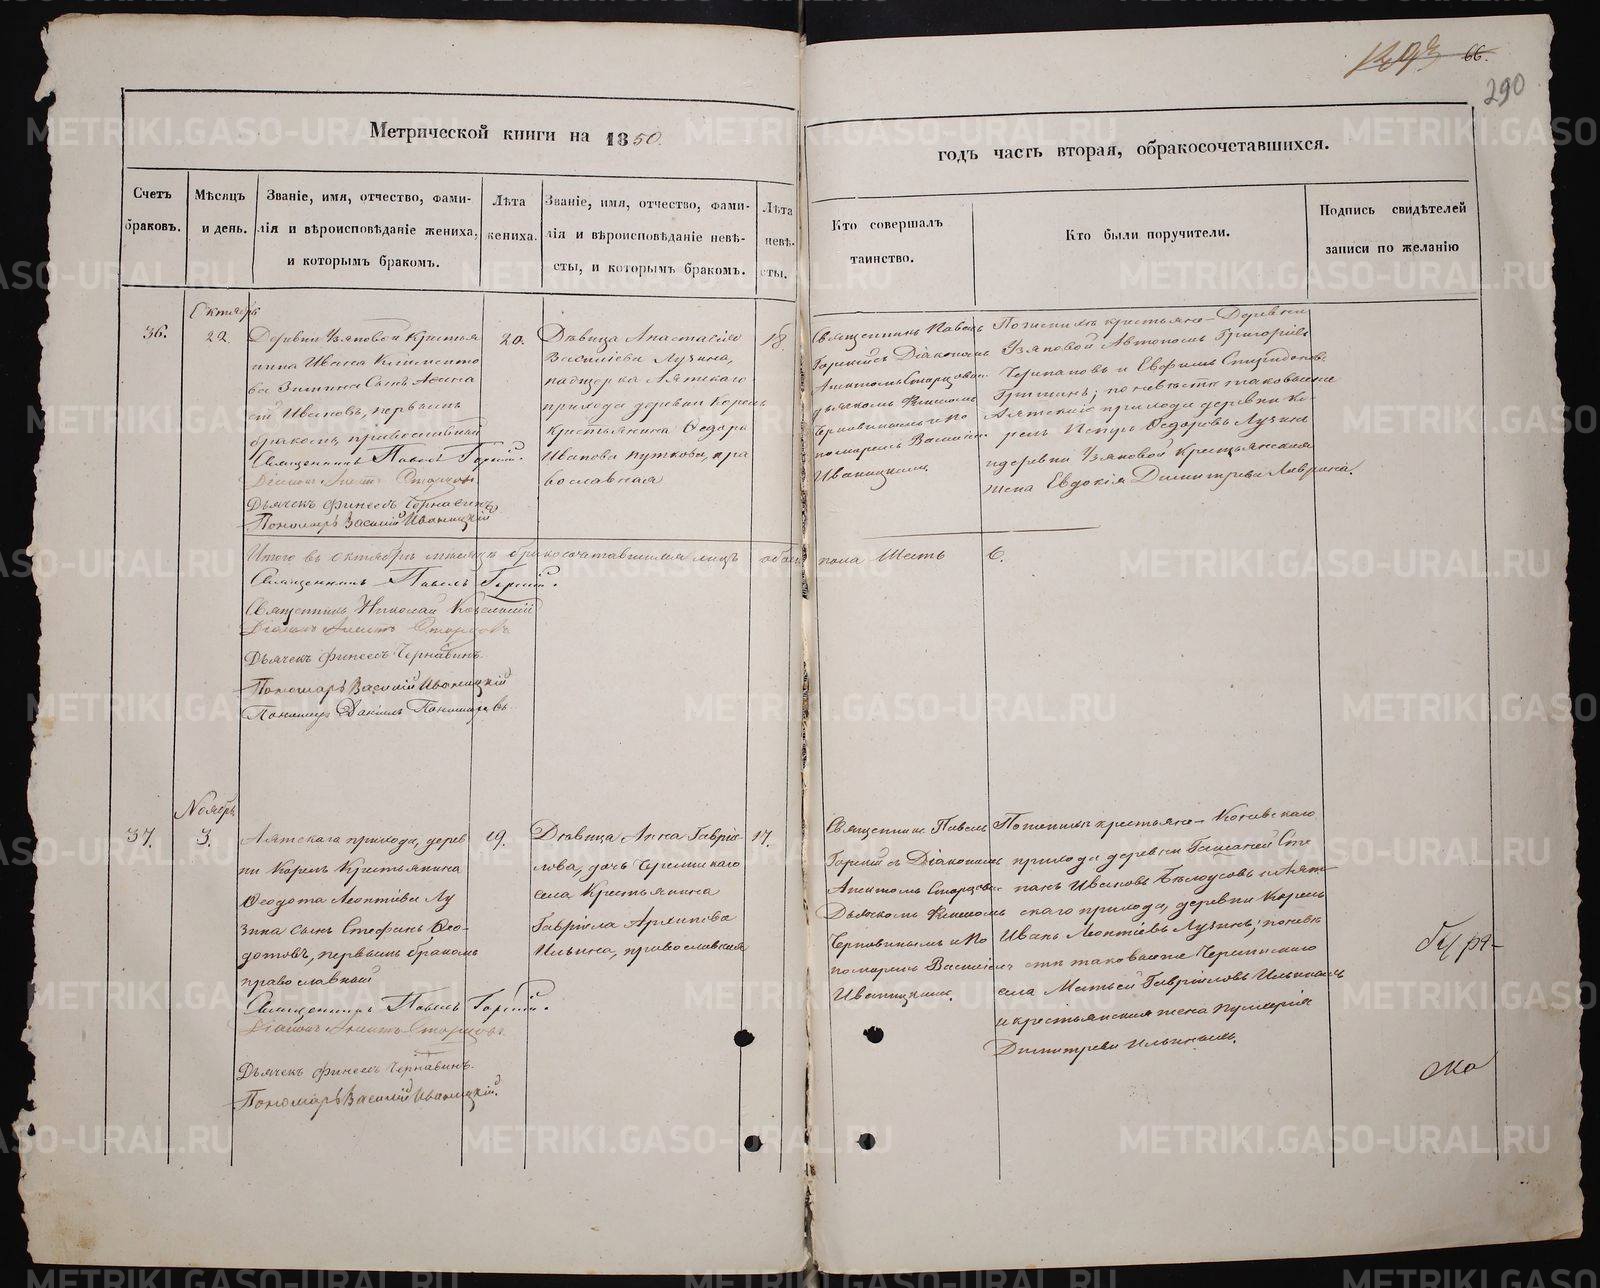 66.
290
Метрической книги на 1850.
годъ часть вторая, обракосочетавшихся.
Счетъ браковъ.
Мѣсяцъ и день.
Званіе, имя, отчество, фами-
лія и вѣроисповѣданіе жениха,
и которымъ бракомъ.
Лѣта
жениха.
Званіе, имя, отчество, фами-
лія и вѣроисповѣданіе невѣ-
сты, и которымъ бракомъ.
Лѣта
невѣ-
сты.
Кто совершалъ
таинство.
Кто были поручители.
Подпись свидѣтелей
записи по желанію
Октябрь
36.
22.
Деревни Узяновой Крестья
нина Ивана
Зимина Сынъ
Ивановъ, первымъ
бракомъ, православный
Священникъ Павелъ Горный.
Діаконъ Старцовъ
Дьячекъ Финеесъ Чернавинъ
Пономарь Василій Иваницкій
20.
Дѣвица Анастасія
Василіева Лузина,
падщерка Аятскаго
прихода деревни Корель
Крестьянина Ѳедора
Иванова Путкова, пра
вославная
18.
Священникъ Павелъ
Горный съ Діакономъ
Старцовымъ
дьячкомъ Финеесомъ
Чернавинымъ и По
номаремъ Василіемъ
Иваницкимъ
По женихѣ крестьяне – Деревни
Узяновой Автономъ Григоріевъ
Черепановъ и Евфимъ Спиридоновъ
по невѣстѣ таковыеже
Аятскаго прихода деревни Ко-
рель Петръ Ѳедоровъ Лузинъ
и деревни Узяновой Крестьянская
жена Евдокія Димитріева
Итого въ октябрѣ мѣсяцѣ бракосочетавшихся лицъ обоего пола Шесть 6.
Священникъ Павелъ Горный.
Священникъ Николай
Діаконъ Старцовъ
Дьячекъ Финеесъ Чернавинъ.
Пономарь Василій Иваницкій
Пономарь Даніилъ Пономаревъ
Ноябрь
37.
3.
Аятскаго прихода, дерев
ни Корель Крестьянина
Ѳеодота Леонтіева Лу
зина сынъ Стефанъ Ѳео-
дотовъ, первымъ бракомъ
православный
Священникъ Павелъ Горный.
Діаконъ Старцовъ.
Дьячекъ Финеесъ Чернавинъ.
Пономарь Василій Иваницкій.
19.
Дѣвица Анна Гавріи-
лова, дочь Черемискаго
села Крестьянина
Гавріила Архипова
Ильина, православная
17.
Священникъ Павелъ
Горный съ Діакономъ
Старцовымъ
Дьячкомъ Финеесомъ
Чернавинымъ и По
номаремъ Василіемъ
Иваницкимъ.
По женихѣ крестьяне –
прихода деревни Сте
панъ Ивановъ Бѣлоусовъ и Аят-
скаго прихода, деревни Корель
Иванъ Леонтіевъ Лузинъ; по невѣ
стѣ таковыеже Черемискаго
села Матвей Гавріиловъ Ильиныхъ
и крестьянская жена
Димитріева Ильиныхъ.